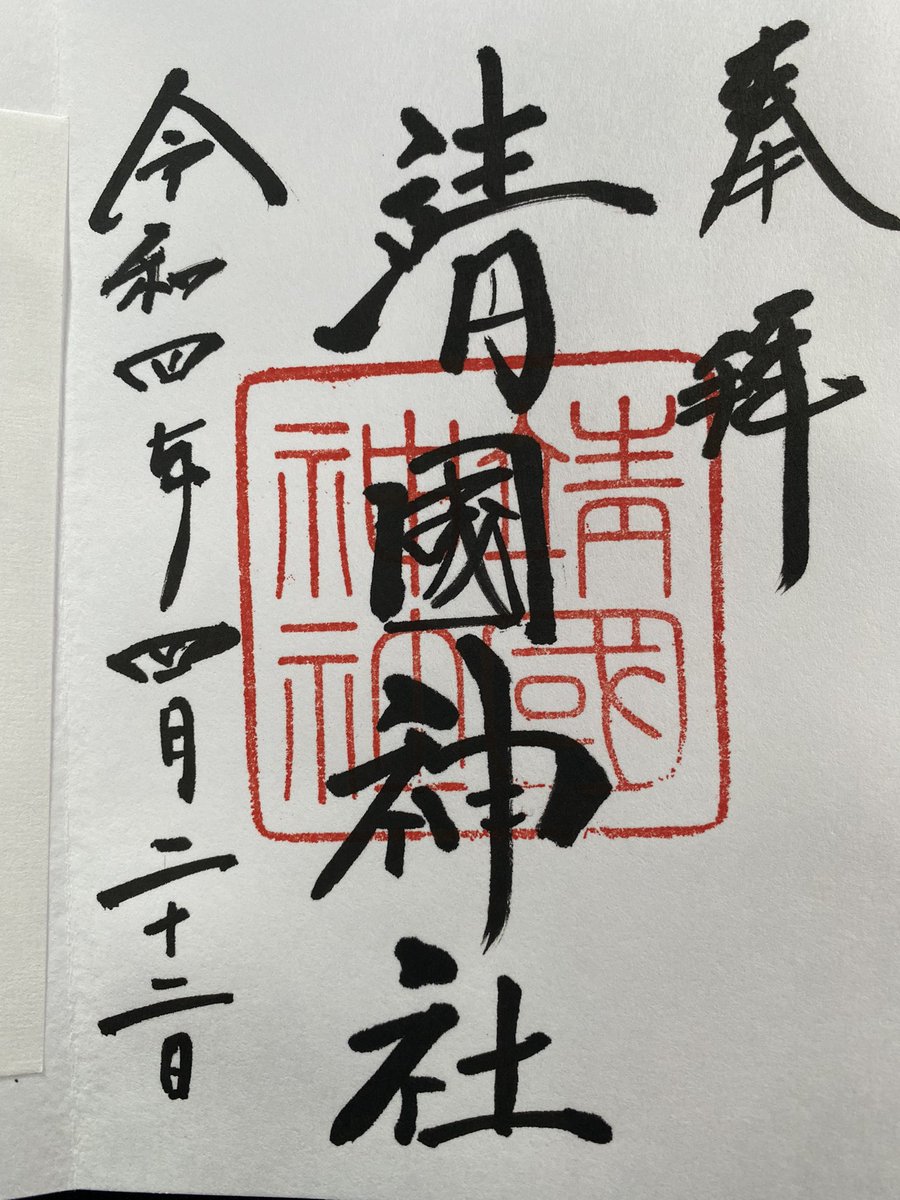 奉拝
靖國神社
靖國
神社
令和四年四月二十二日